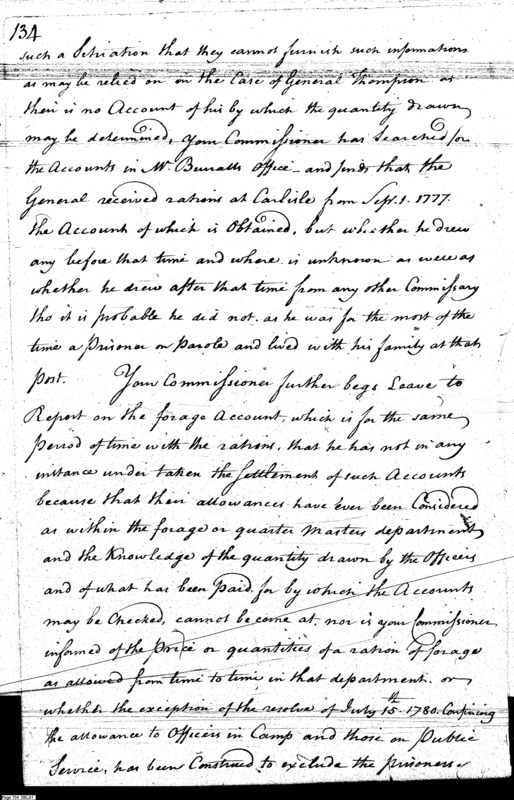 134
such a Sitiation that they cannot furnish such informations
as may be relied on on the Case of General Thompson as
their is no Account of his by which the quantity drawn
may be determined, Your Commissioner has Searched for
the Accounts in Mr. Burralls Office - and finds that the
General received rations at Carlisle from Sept. 1. 1777.
the Account of which is Obtained, but whether he drew
any before that time and where is unknown as well as
whether he drew after that time from any other Commissary
tho it is probable he did not. as he was for the most of the
time a Prisoner on Parole and lived with his family at that
Post. Your Commissioner further begs Leave to
Report on the forage Account, which is for the same
Period of time with the rations, that he has not in any
instance under taken the Settlement of such Accounts
because that their allowances have Ever been Considered
as within the forage or quarter Masters department
and the Knowledge of the quantity drawn by the Officers
and of what has been Paid for by which the Accounts
may be Checked, cannot be come at, nor is your Commissioner
informed of the Price or quantities of a ration of forage
as allowed from time to time in that department. or
whether the exception of the resolve of July 15th 1780. Confineing
the allowance to Officers in Camp and those on Public
Service, has been Construed to exclude the prisoners